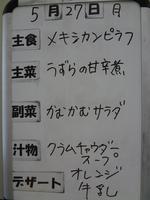 5月27日 月
主食 メキシカンピラフ
主菜 うずらの甘辛煮
副菜 かむかむサラダ
汁物 クラムチャウダースープ
デザート オレンジ
牛乳